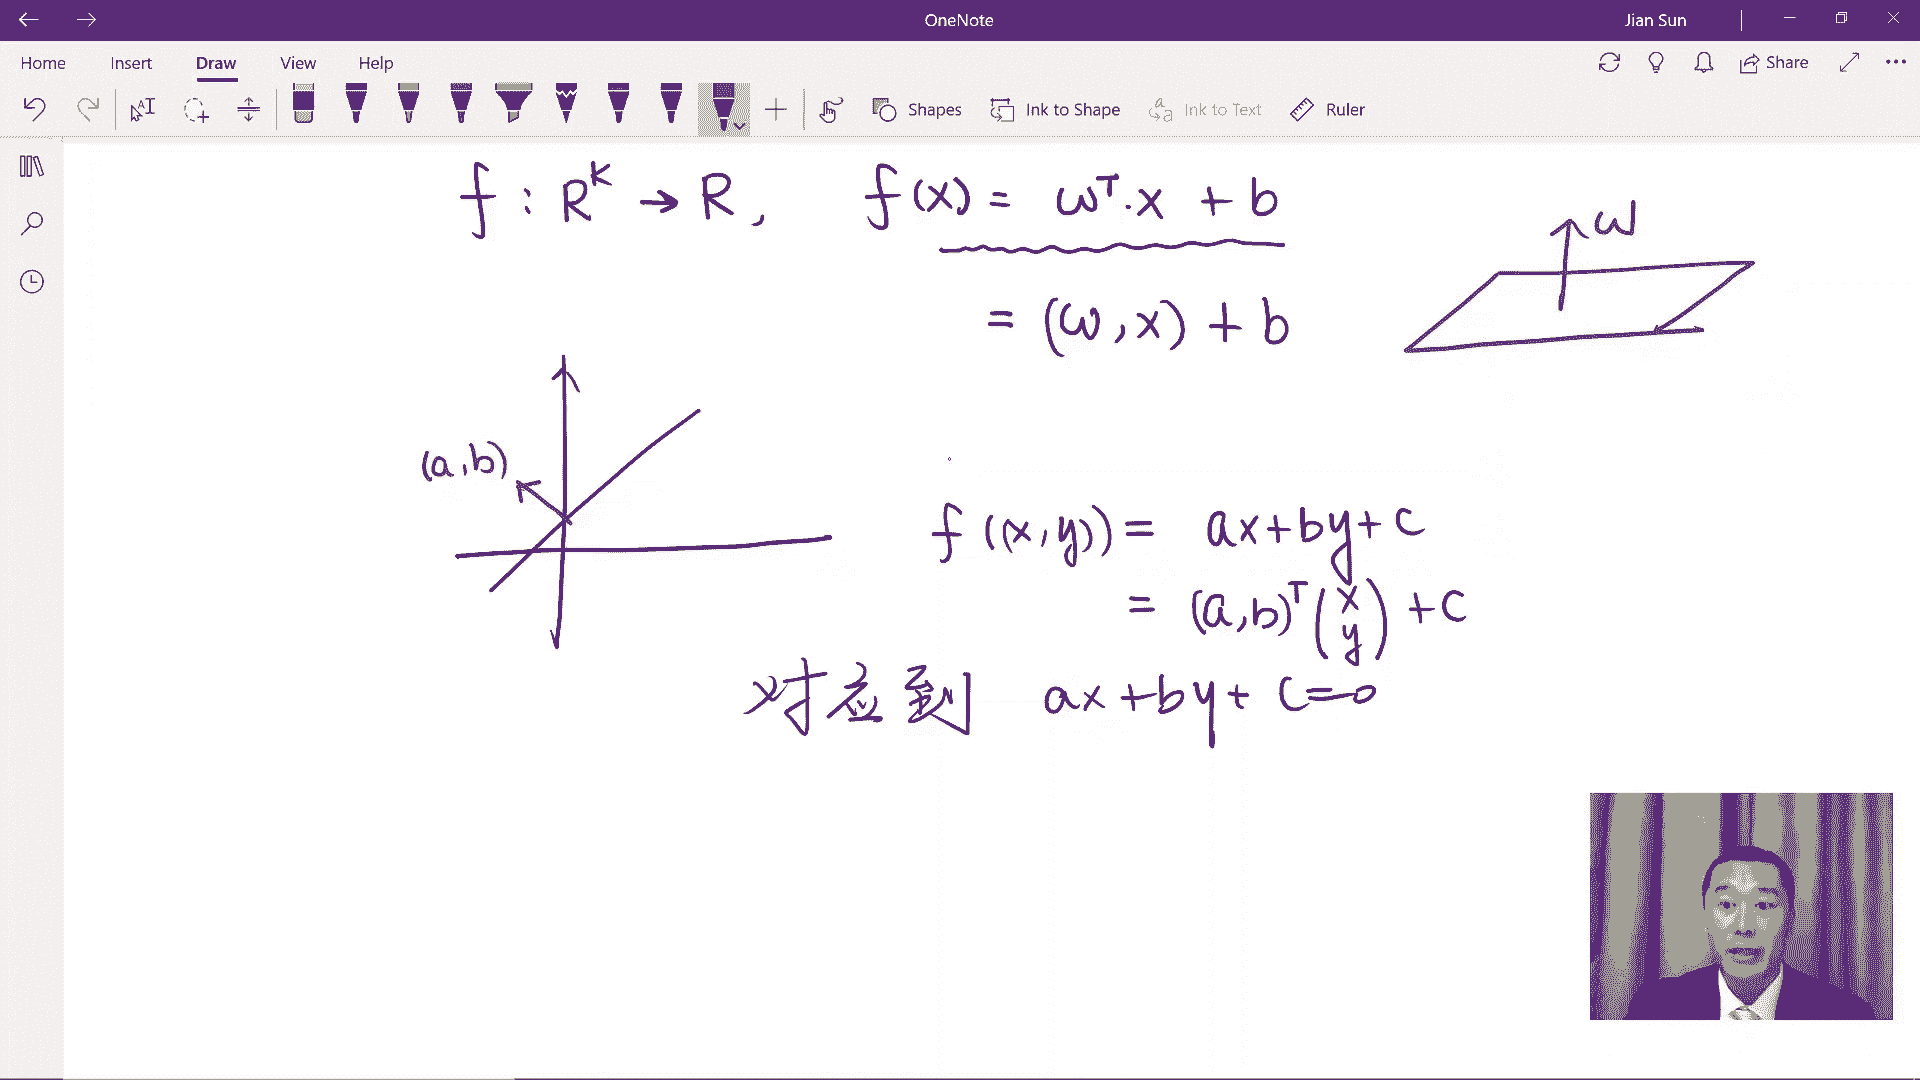 OneNote
Jian Sun
Home Insert Draw View Help
Share
Shapes Ink to Shape Ink to Text Ruler
f : R^K → R, f(x) = ω^T·x + b
ω
= (ω,x) + b
(a,b)
f((x,y)) = ax+by+c
= (a,b)^T (x y) + c
对应到 ax+by+c=0